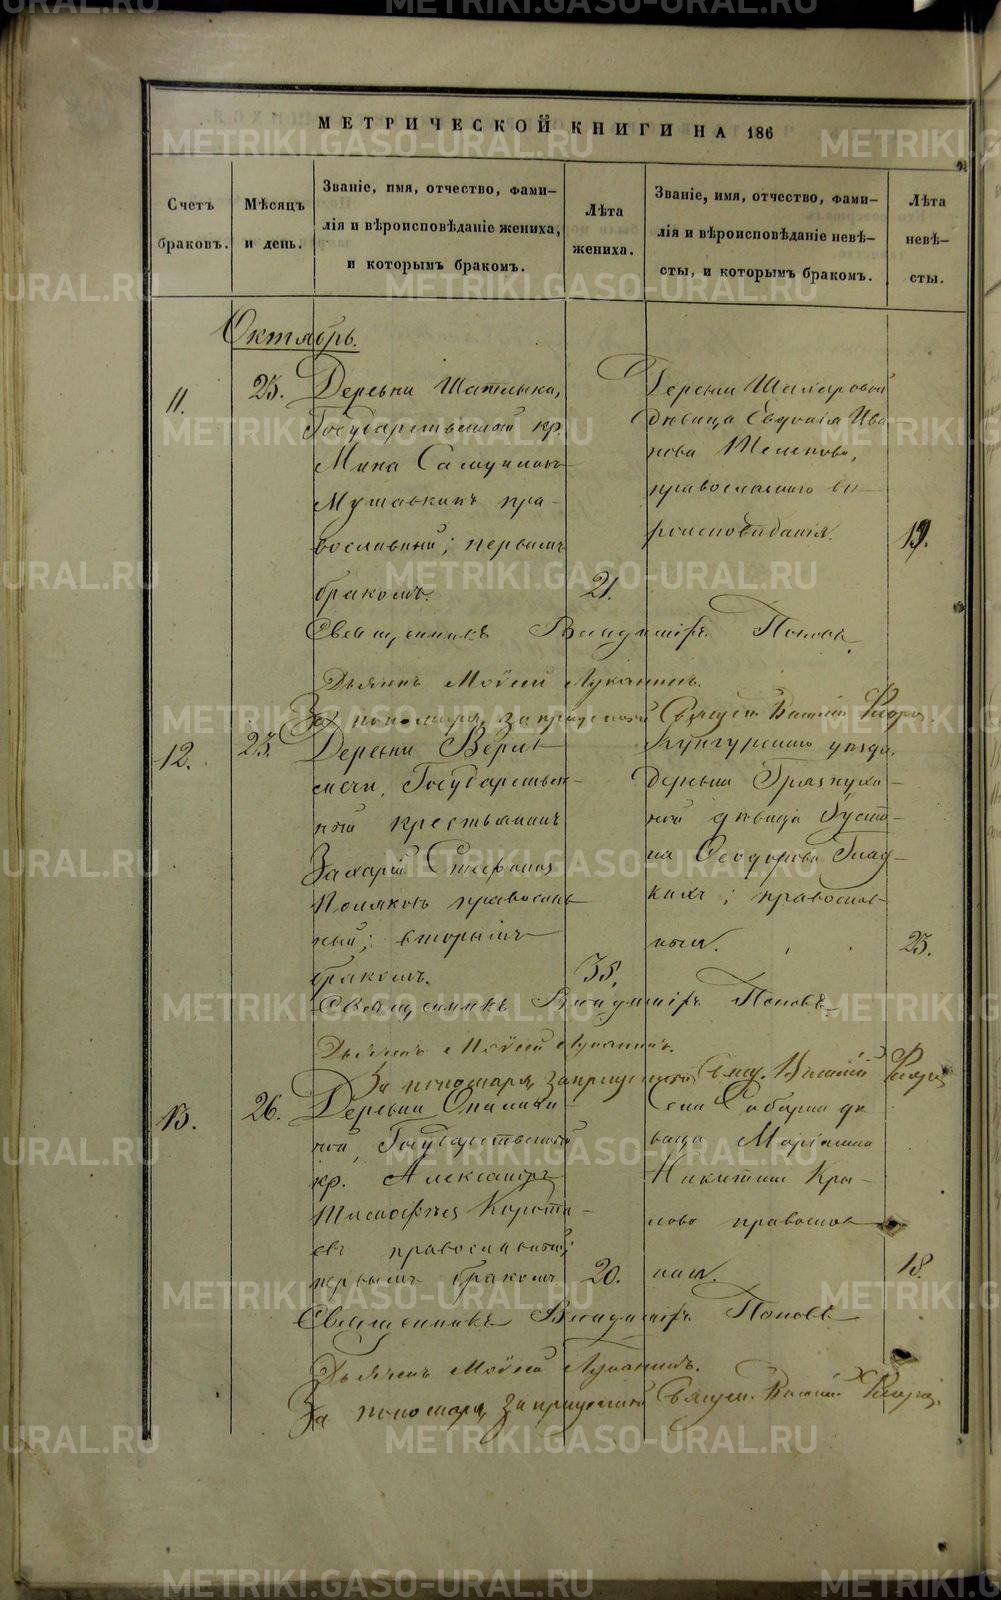 МЕТРИЧЕСКОЙ КНИГИ НА 186
Счетъ браковъ.
Мѣсяцъ и день.
Званіе, имя, отчество, фами-
лія и вѣроисповѣданіе жениха,
и которымъ бракомъ.
Лѣта
жениха.
Званіе, имя, отчество, фами-
лія и вѣроисповѣданіе невѣ-
сты, и которымъ бракомъ.
Лѣта
невѣ-
сты.
Октябрь.
11.
23.
Деревни Шатлыка,
Государственный кр.
Мина Самуиловъ
православный; первымъ
бракомъ.
21.
Деревни
дѣвица Евдокія Ива-
нова
православнаго вѣ-
роисповѣданія.
19.
Священникъ Владиміръ Поповъ.
Дьячекъ Моѵсей Луканинъ.
За пономаря, запрещенный Священ. Василій
12.
23.
Деревни
Государствен-
ный крестьянинъ
Захарій Стефановъ
Поляковъ православ-
ный; вторымъ
бракомъ.
38.
Кунгурскаго уѣзда,
деревни
ной дѣвица Іусти-
на Ѳеодорова Глад-
кихъ; православ-
ная.
23.
Священникъ Владиміръ Поповъ.
Дьячекъ Моѵсей Луканинъ.
За пономаря, запрещенный Свящ. Василій
13.
26.
Деревни
ной, Государственный
кр. Александръ
Тимофѣевъ
православный;
первымъ бракомъ.
20.
Села Сабарки дѣ-
вица Маріамна
Никитина Кры-
лова православ-
ная.
18.
Священникъ Владиміръ Поповъ
Дьячекъ Моѵсей Луканинъ.
За пономаря, запрещенный Священ. Василій
METRIKI.GASO-URAL.RU